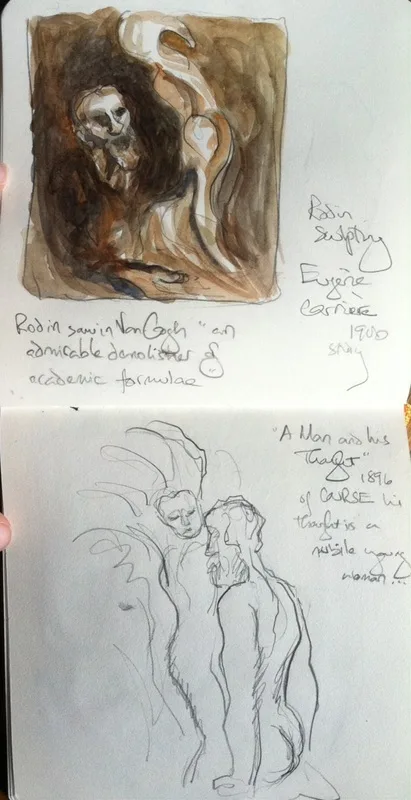 Rodin
Sculpting
Eugène
Carrière
1900
Rodin saw in Van Gogh "an
admirable demolisher of
academic formulae
"A Man and his
Thought"
1896
of COURSE his
thought is a
nubile young
woman...